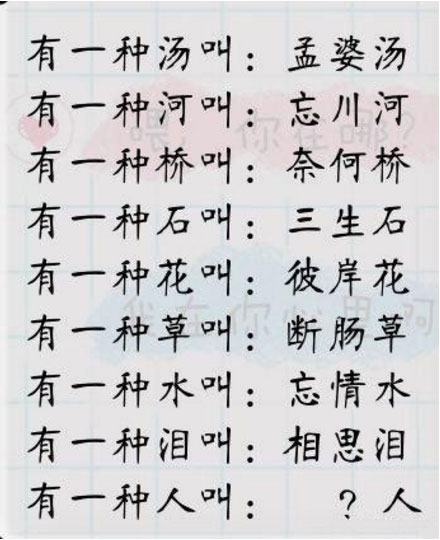 有一种汤叫：孟婆汤
有一种河叫：忘川河
喂，你在哪？
有一种桥叫：奈何桥
有一种石叫：三生石
有一种花叫：彼岸花
我在你心里啊
有一种草叫：断肠草
有一种水叫：忘情水
有一种泪叫：相思泪
有一种人叫：？人